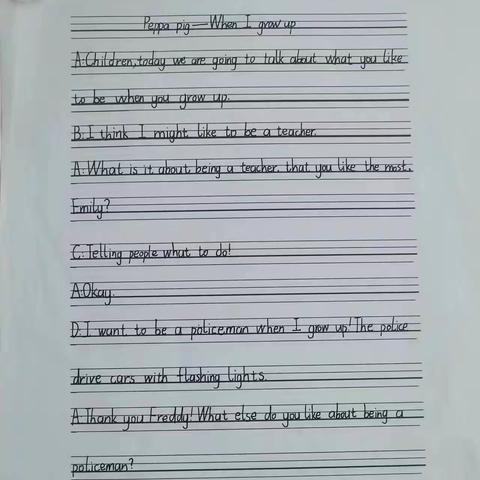 Peppa pig—When I grow up
A:Children,today we are going to talk about what you like
to be when you grow up.
B:I think I might like to be a teacher.
A:What is it about being a teacher. that you like the most.
Emily?
C:Telling people what to do!
A:Okay.
D:I want to be a policeman when I grow up!The police
drive cars with flashing lights.
A:Thank you Freddy!What else do you like about being a
policeman?